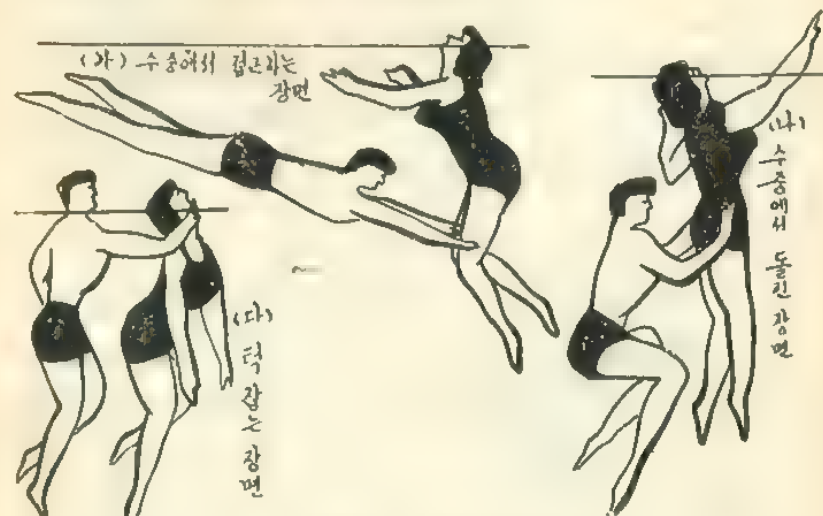 (가) 수중에서 접근하는
장면
(나) 수중에서 돌린 장면
(다) 턱 잡는 장면